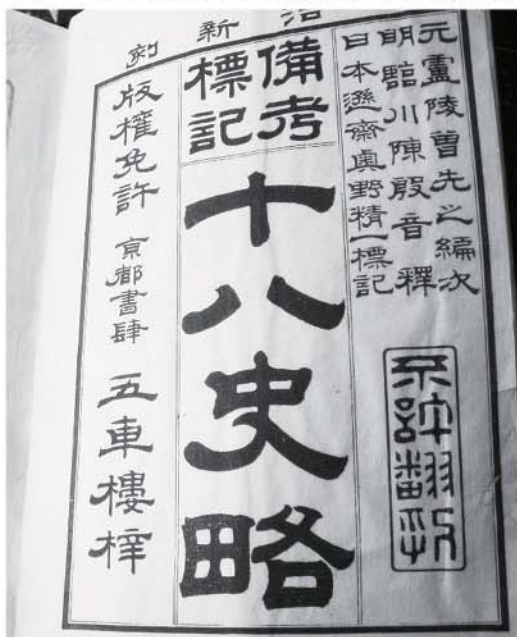 治新刻
元廬陵曽先之編次
明臨川陳殷音釋
日本遜齋奥野精一標記
不許翻刻
備考
標記
十八史略
版權免許 京都書肆 五車樓梓